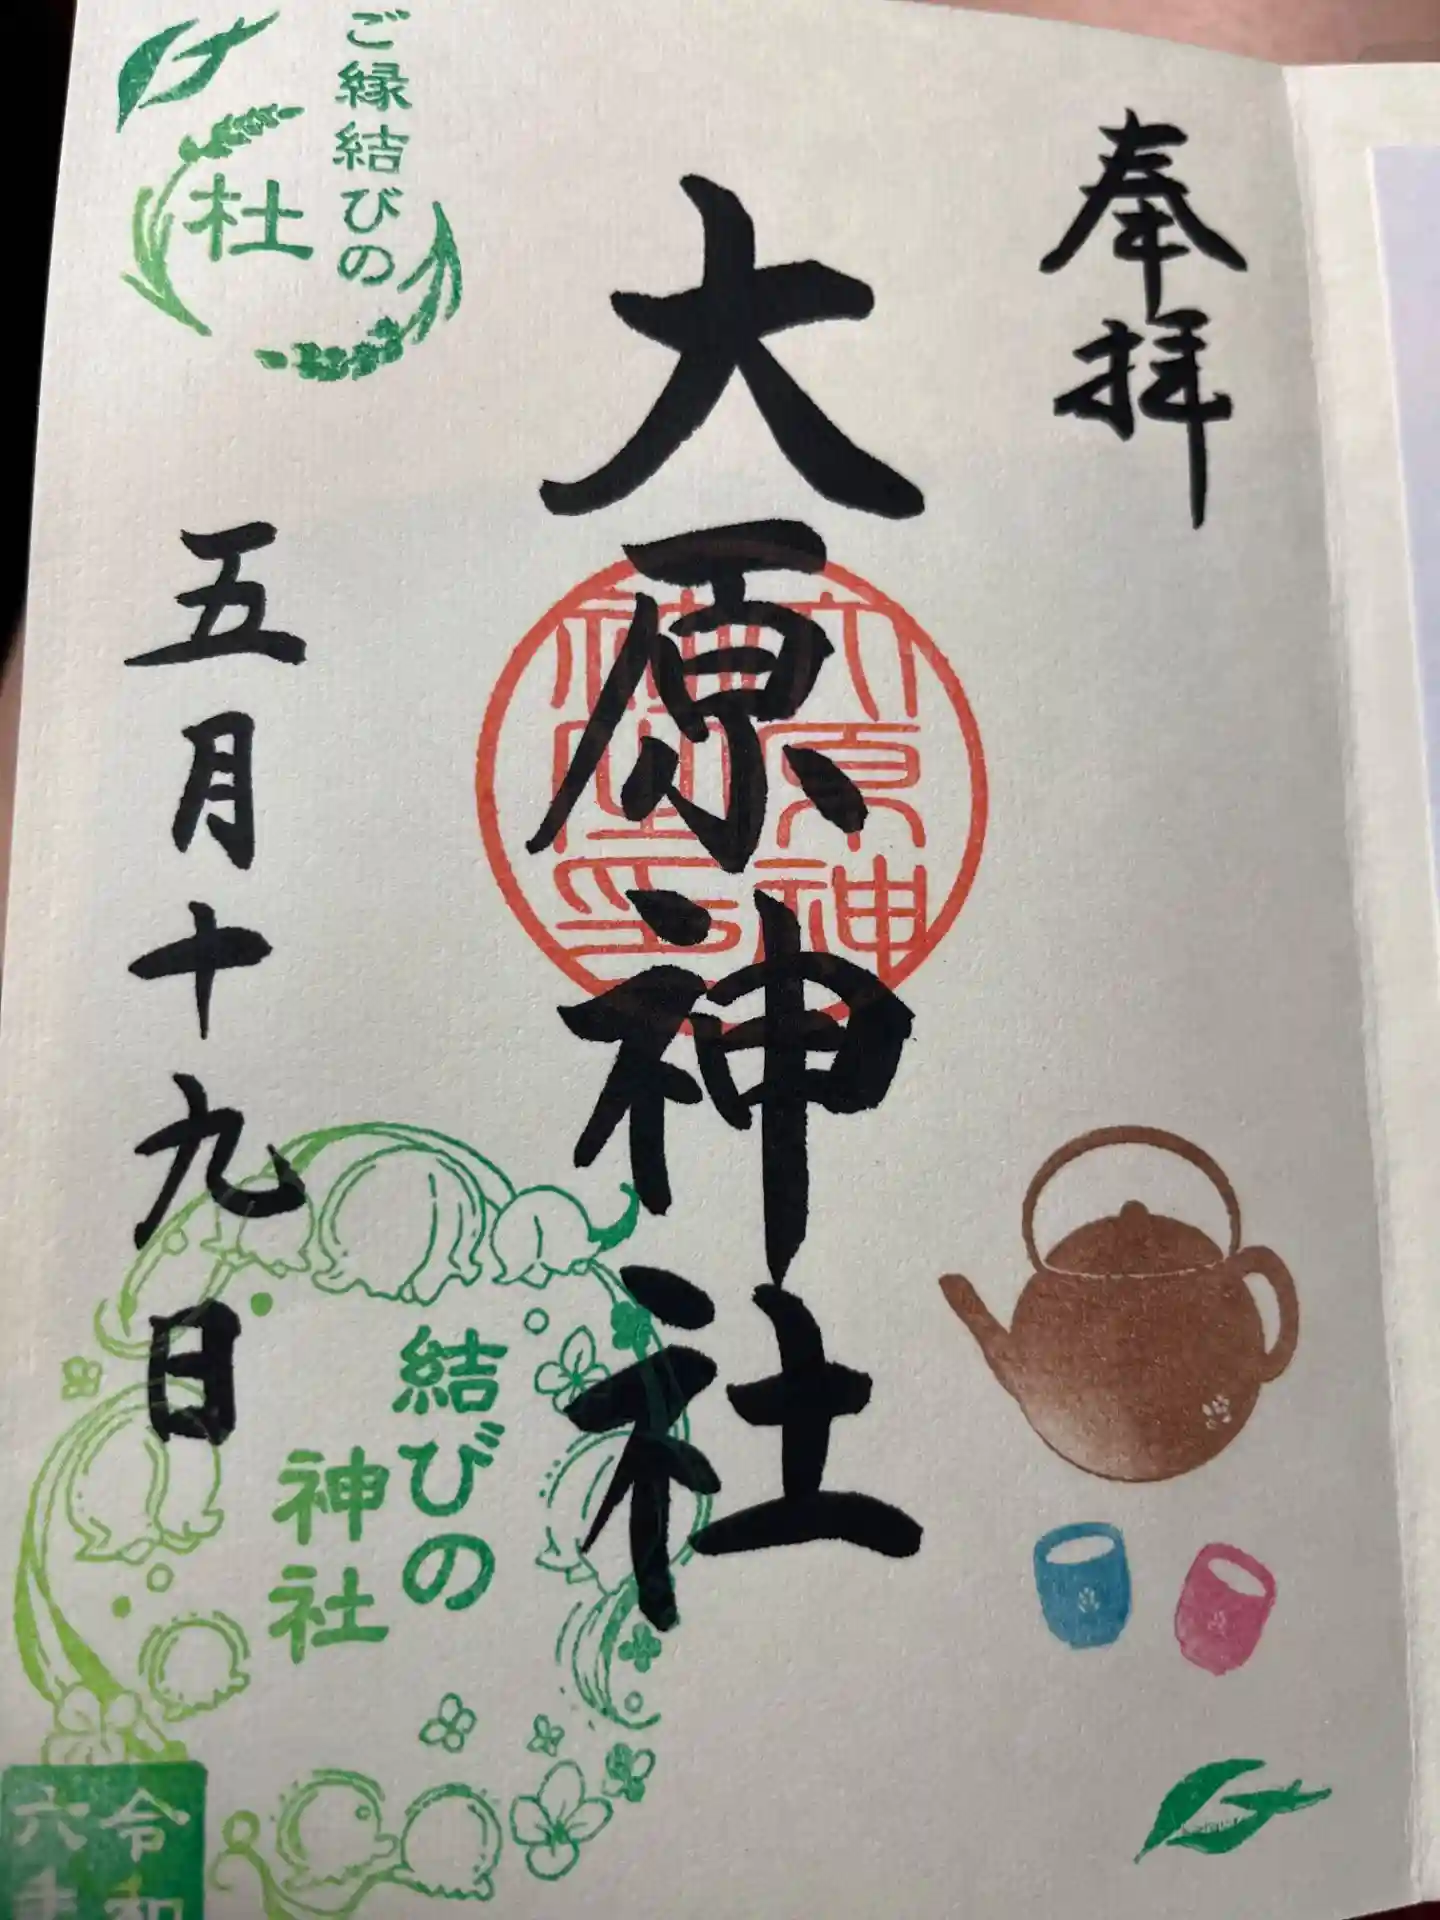 奉拝
大原神社
大原神社印
ご縁結びの
杜
五月十九日
結びの
神社
令和
六年